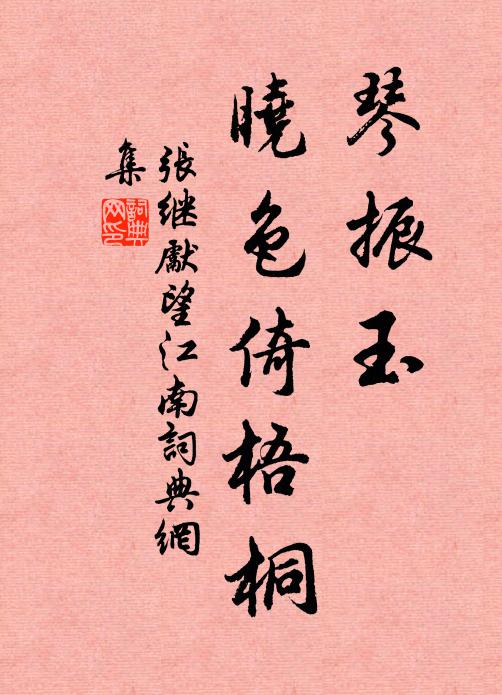 琴振玉
曉色倚梧桐
張繼獻望江南詞典網
集
詞典
网印